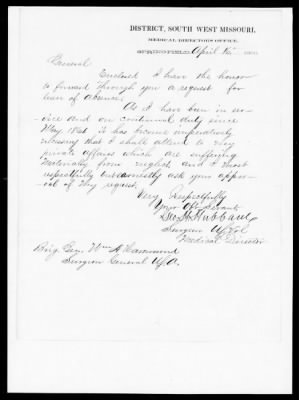 DISTRICT, SOUTH WEST MISSOURI,
MEDICAL DIRECTOR'S OFFICE,
SPRINGFIELD, April
General
Enclosed I have the honor
to forward through you a request for
leave of absence.
As I have been in ser-
vice and on continual duty since
May 1861 It has become imperatively
necessary that I shall attend to my
private affairs which are suffering
materially from neglect, and I most
respectfully but earnestly ask your appro-
-val of my request.
Very Respectfully
Your Obt Servant
Hubbard
Surgeon
Medical Director
Brig. Gen. Wm A Hammond
Surgeon General U.S.A.